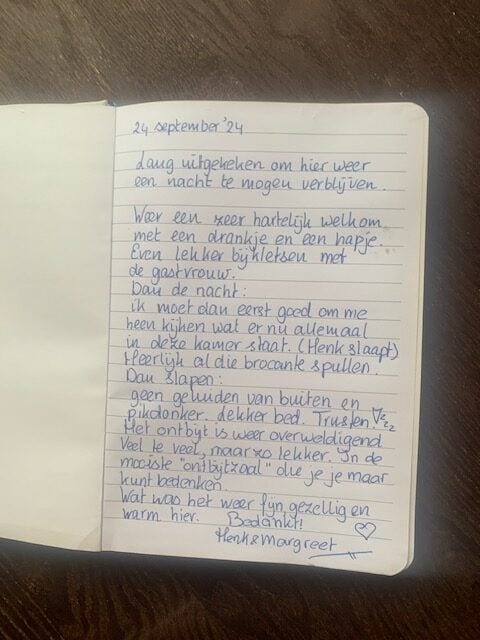 24 september '24
Lang uitgekeken om hier weer
een nacht te mogen verblijven.
Weer een zeer hartelijk welkom
met een drankje en een hapje.
Even lekker bijkletsen met
de gastvrouw.
Dan de nacht:
ik moet dan eerst goed om me
heen kijken wat er nu allemaal
in deze kamer staat. (Henk slaapt)
Heerlijk al die brocante spullen.
Dan slapen:
geen geluiden van buiten en
pikdonker. Lekker bed. Trusten Zzzz
Het ontbijt is weer overweldigend
Veel te veel, maar zo lekker. In de
mooiste "ontbijtzaal" die je je maar
kunt bedenken.
Wat was het weer fijn, gezellig en
warm hier. Bedankt!
Henk & Margreet